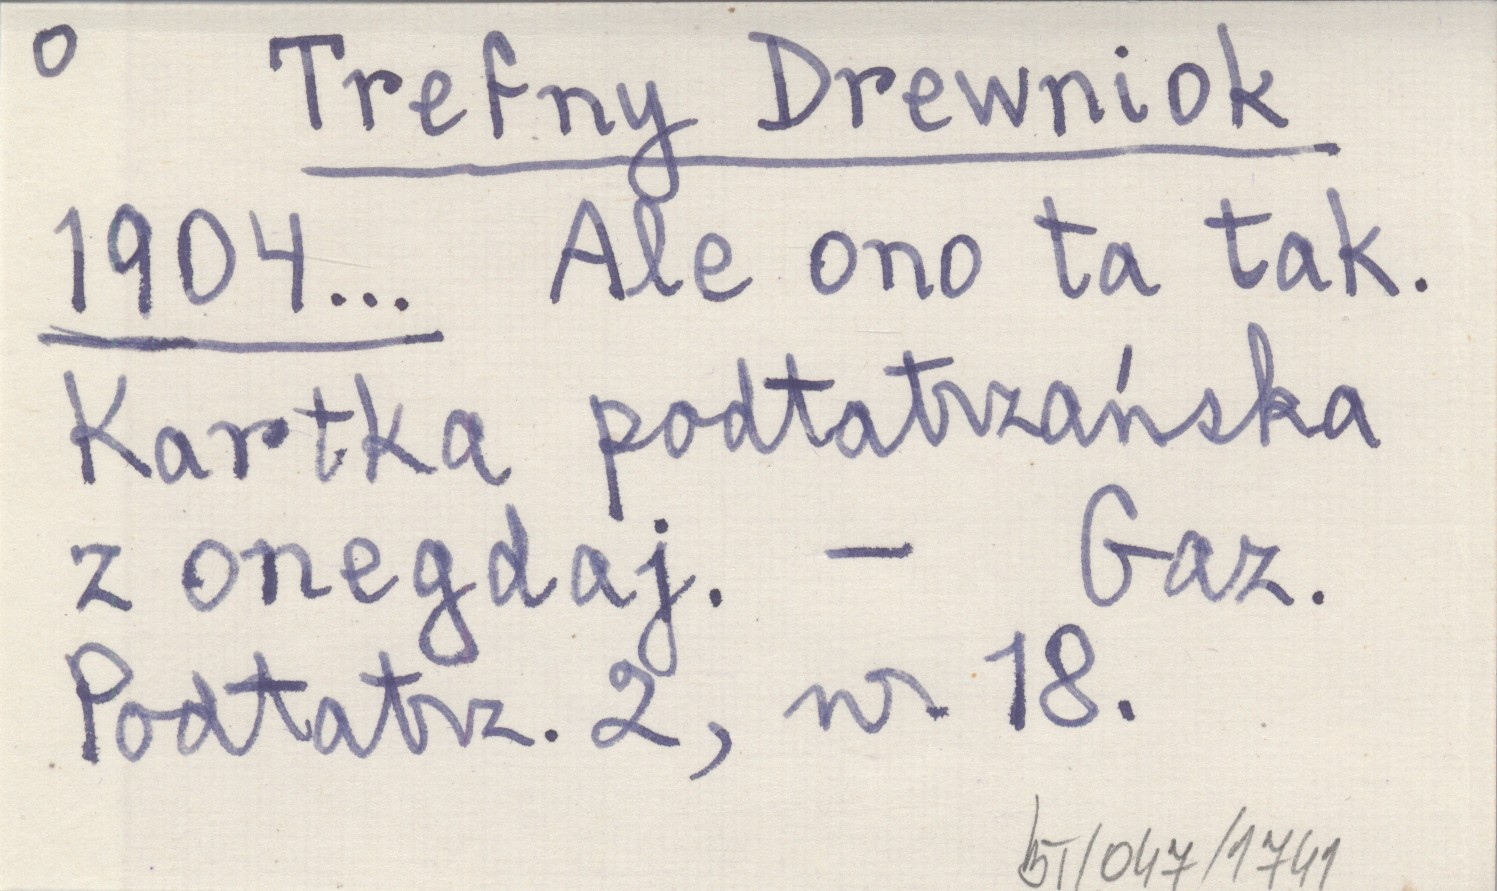 o Trefny Drewniok
1904... Ale ono ta tak.
Kartka podtatrzańska
z onegdaj. — Gaz.
Podtatrz. 2, nr 18.
BI/047/1741